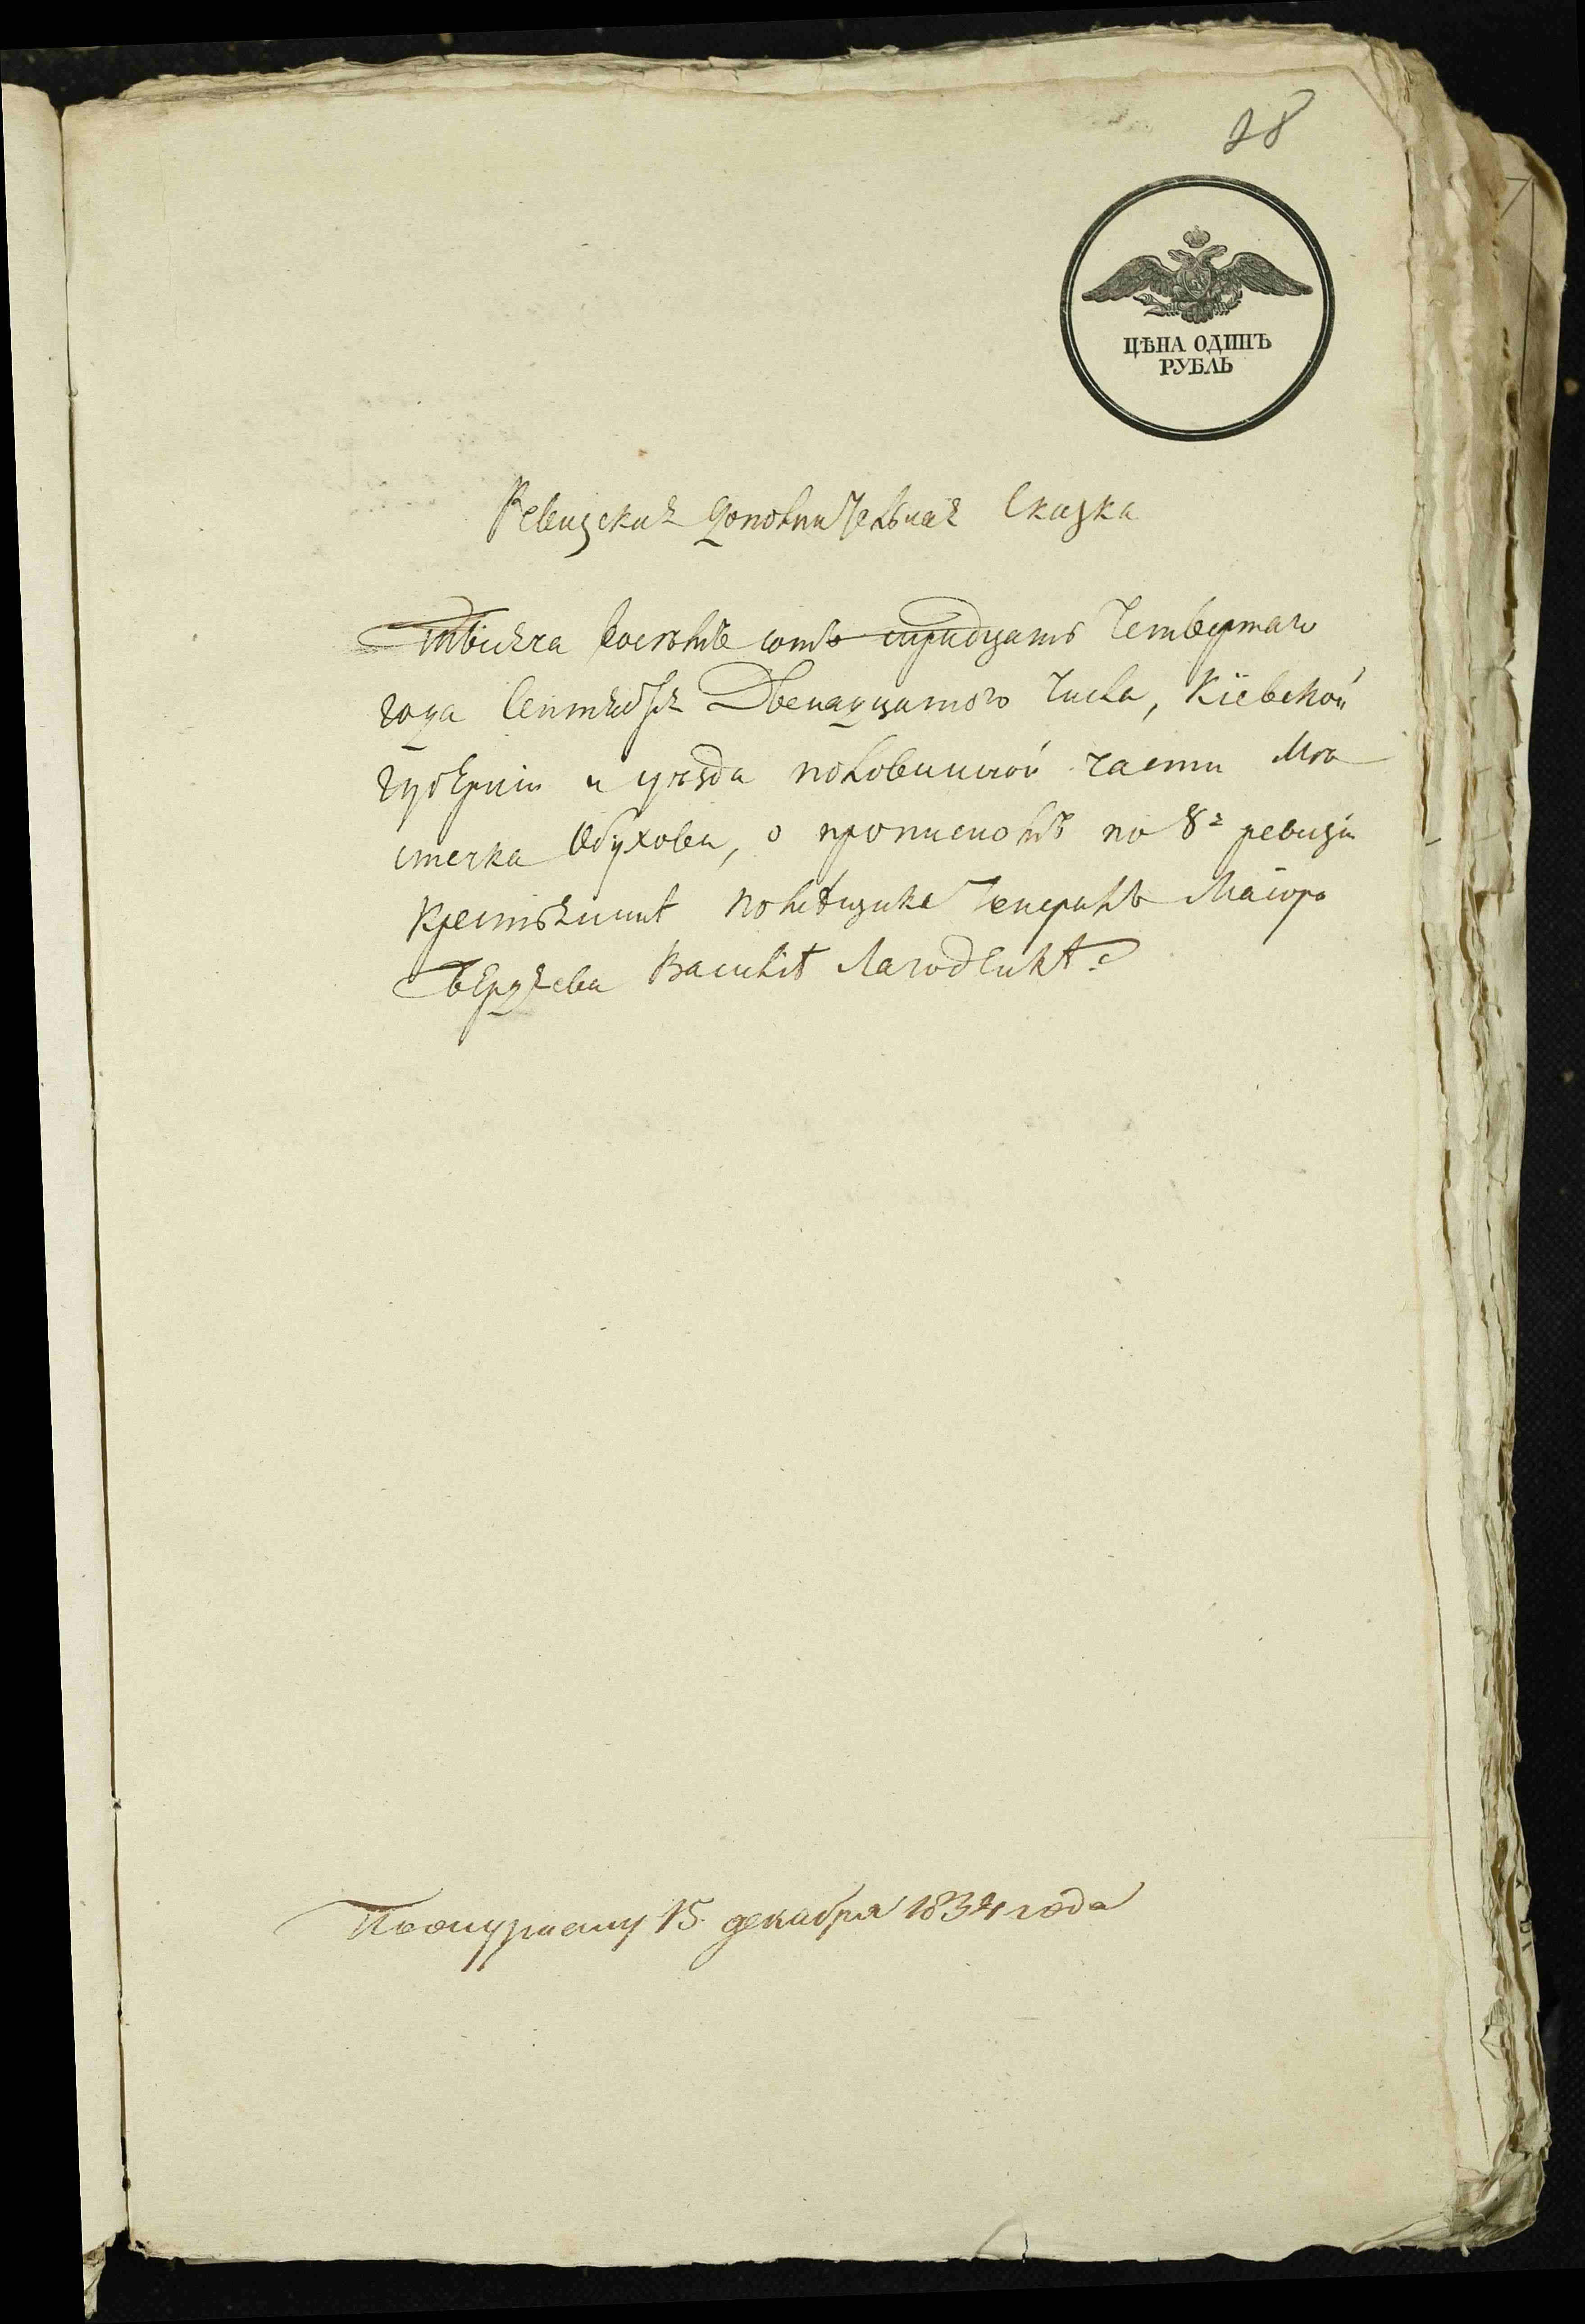 28
ЦѢНА ОДИНЪ
РУБЛЬ
Ревизская дополнительная Сказка
Тысяча восемь сотъ тридцать четвертаго
года Сентября Двенадцатого числа, Кіевской
губерніи и уѣзда половинной части Мѣ
стечка Обухова, о прописномъ по 8й ревизіи
крестьянинѣ помѣщика Генералъ Маіора
Бердяева Василіѣ Лагод
15 декабря 1834 года